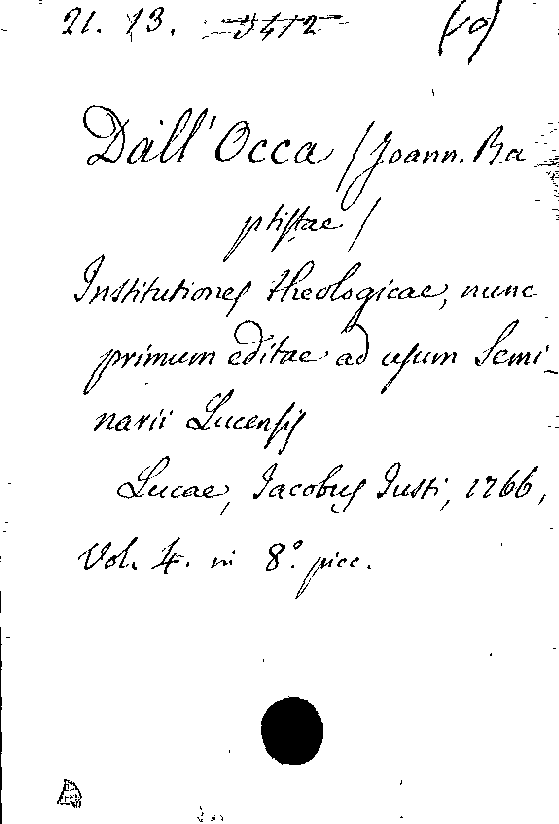 21. 13. 3412 (10)
Dall'Occa (Joann. Ba
ptistae)
Institutiones theologicae, nunc
primum editae ad usum Semi-
narii Lucensis
Lucae, Iacobus Iusti, 1766,
Vol. 4. in 8.° picc.